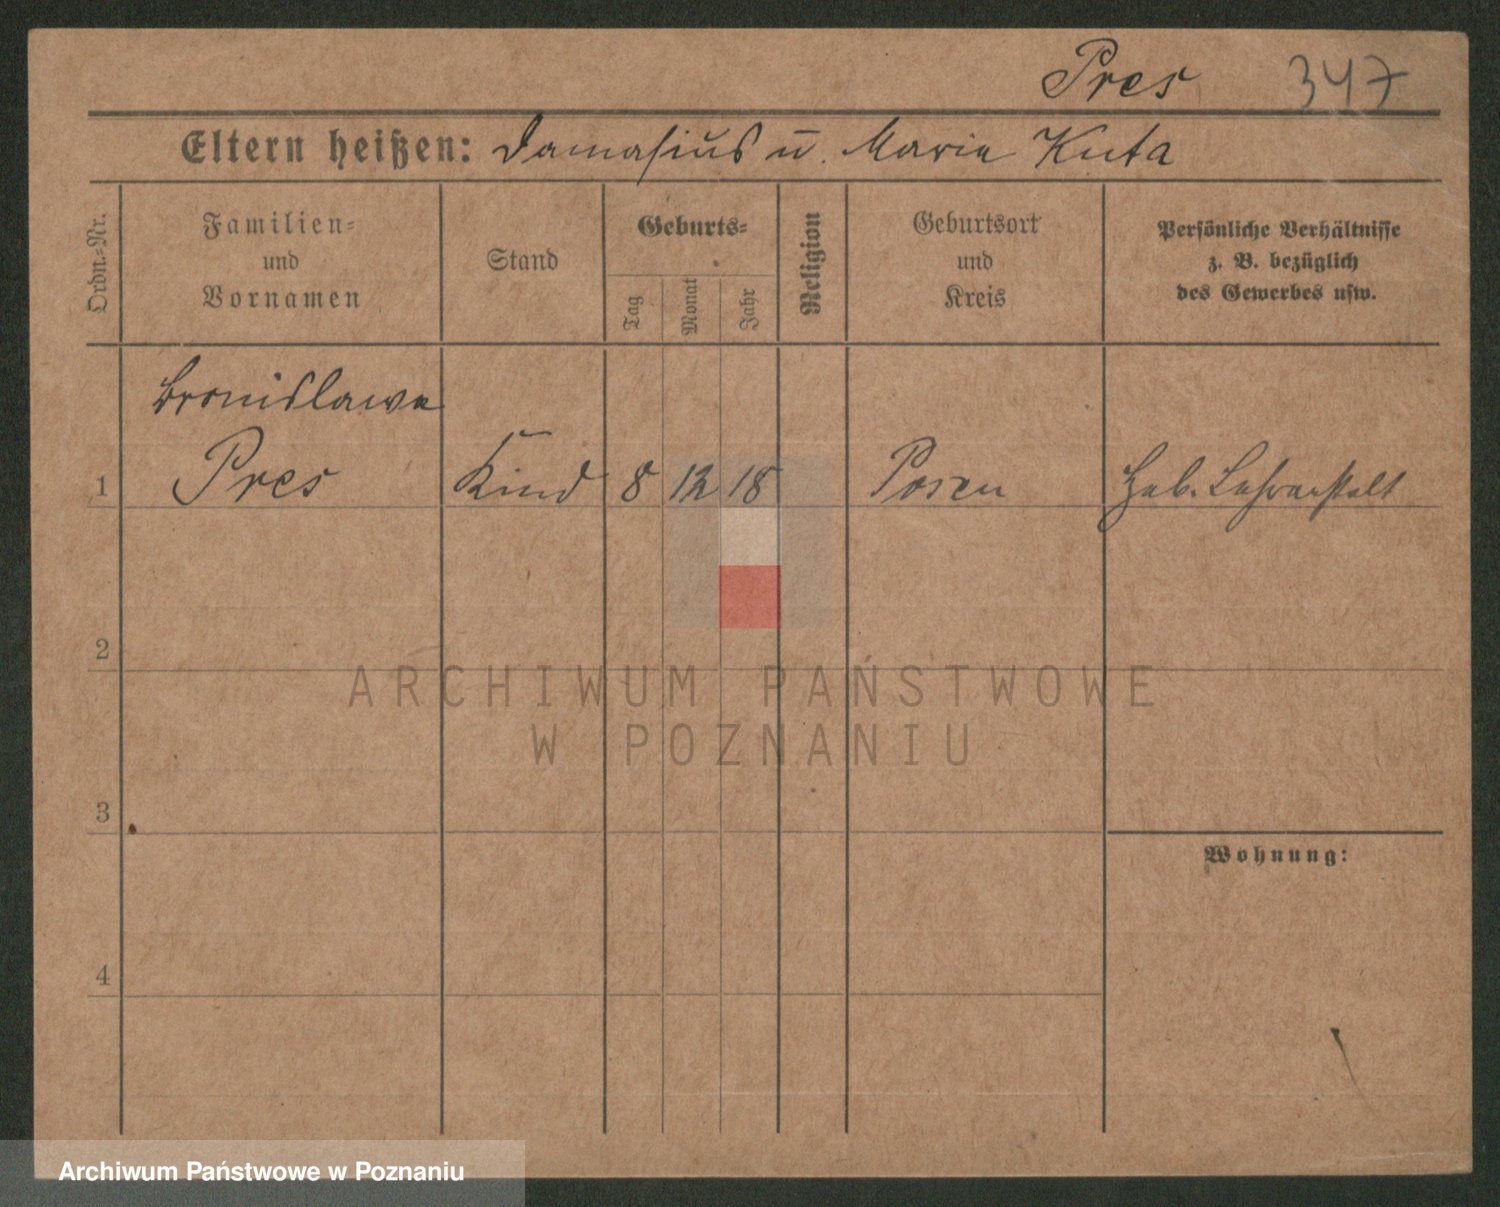 Pres 347
Eltern heißen: Damasius u. Marie Kuta
Ordn.=Nr.
Familien=
und
Vornamen
Stand
Geburts=
Tag
Monat
Jahr
Religion
Geburtsort
und
Kreis
Persönliche Verhältnisse
z. B. bezüglich
des Gewerbes usw.
Bronislawa
1 Pres Kind 8 12 18 Posen Heb. Lehranstalt
2
3
4
Wohnung:
ARCHIWUM PAŃSTWOWE
W POZNANIU
Archiwum Państwowe w Poznaniu